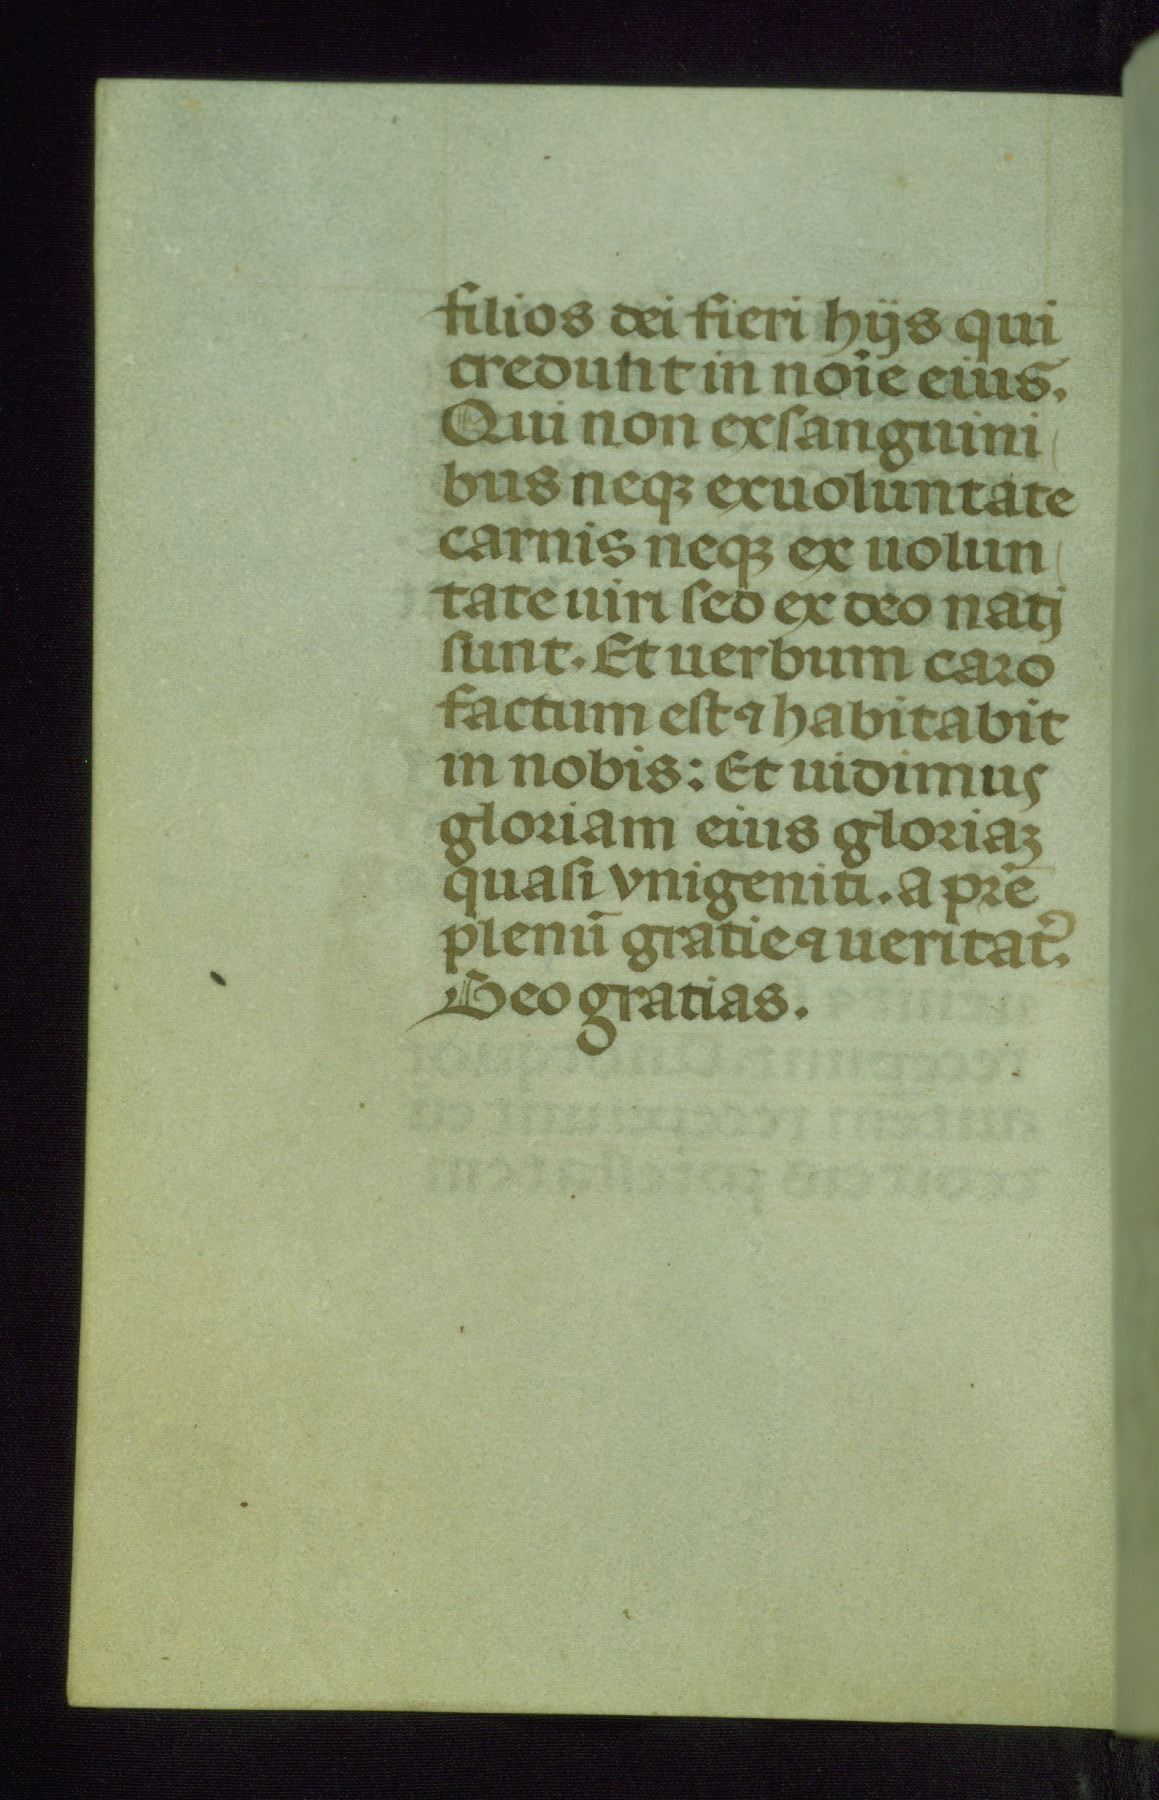 filios dei fieri hijs qui
credunt in noīe eius.
Qui non ex sanguini
bus neqꝫ ex uoluntate
carnis neqꝫ ex uolun
tate uiri sed ex deo natj
sunt. Et uerbum caro
factum est ⁊ habitabit
in nobis: Et uidimus
gloriam eius gloriaꝫ
quasi vnigeniti. a pr̄e
plenū gratie ⁊ ueritat᷒.
Deo gratias.